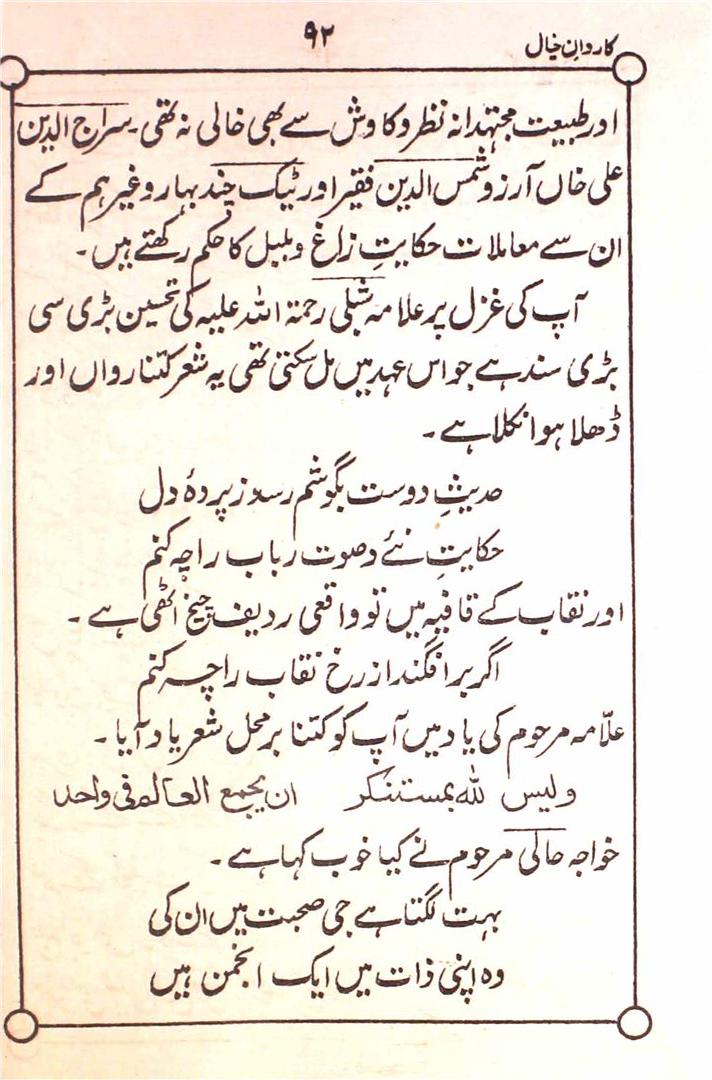 کاروانِ خیال
۹۲
اور طبیعت مجتہدانہ نظر و کاوش سے بھی خالی نہ تھی۔ سراج الدین
علی خاں آرزو شمس الدین فقیر اور ٹیک چند بہار وغیرہم کے
ان سے معاملات حکایتِ زاغ و بلبل کا حکم رکھتے ہیں۔
آپ کی غزل پر علامہ شبلی رحمۃ اللہ علیہ کی تحسین بڑی سی
بڑی سند ہے جو اس عہد میں مل سکتی تھی یہ شعر کتنا رواں اور
ڈھلا ہوا نکلا ہے۔
حدیثِ دوست بگوشم رسد ز پردۂ دل
حکایتِ نئے و صوت رباب را چہ کنم
اور نقاب کے قافیہ میں تو واقعی ردیف چیخ اٹھی ہے۔
اگر برافگند از رخ نقاب را چہ کنم
علّامہ مرحوم کی یاد میں آپ کو کتنا برمحل شعر یاد آیا۔
ولیس للہ بمستنکر ان یجمع العالم فی واحد
خواجہ حالی مرحوم نے کیا خوب کہا ہے۔
بہت لگتا ہے جی صحبت میں ان کی
وہ اپنی ذات میں ایک انجمن ہیں